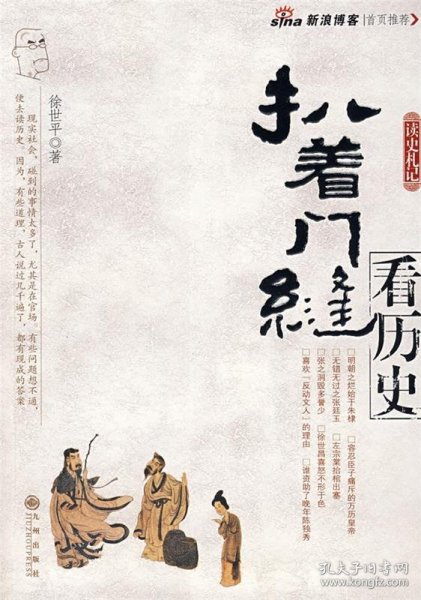 sina 新浪博客 | 首页推荐
扒着门缝
看历史
读史札记
徐世平◎著
现实社会，碰到的事情太多了，尤其是在官场。有些问题想不通，
便去读历史。因为，有些道理，古人说过几千遍了，都有现成的答案。
□明朝之烂始于朱棣 □容忍臣子痛斥的万历皇帝
□无错无过之张廷玉 □左宗棠抬棺出塞
□张之洞毁多誉少 □徐世昌喜怒不形于色
□喜欢“反动文人”的理由 □谁资助了晚年陈独秀
九州出版社
JIUZHOUPRESS
孔夫子旧书网
www.kongfz.com